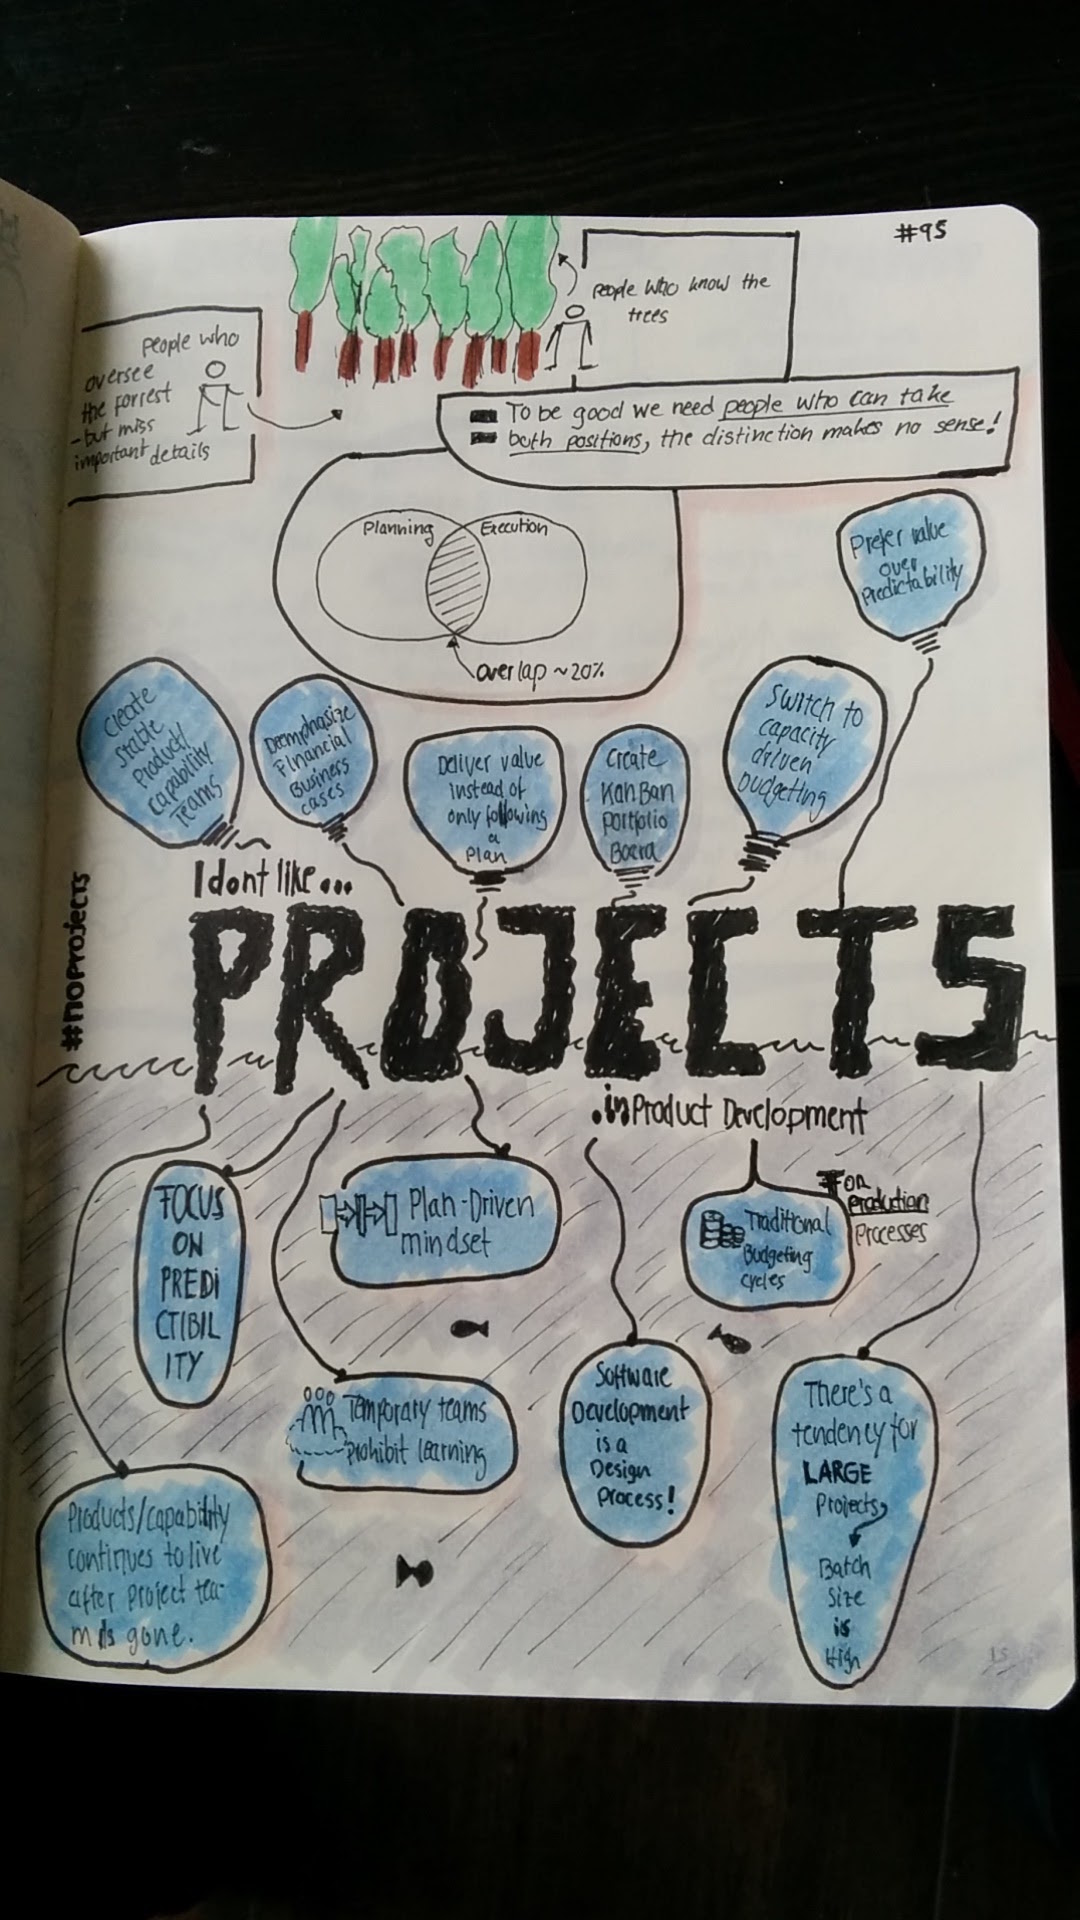 #95
people who know the
trees
people who
oversee
the forrest
- but miss
important details
To be good we need people who can take
both positions, the distinction makes no sense!
Planning
Execution
overlap ~20%
Prefer value
over
Predictability
Create
Stable
Product/
Capability
Teams
Deemphasize
Financial
Business
cases
Deliver value
instead of
only following
a
Plan
Create
KanBan
Portfolio
Board
Switch to
capacity
driven
budgeting
#noprojects
I dont like...
PROJECTS
.in Product Development
FOCUS
ON
PREDI
CTIBIL
ITY
Plan-Driven
mindset
Traditional
Budgeting
cycles
For
production
Processes
Temporary teams
prohibit learning
Software
Development
is a
Design
Process!
There's a
tendency for
LARGE
Projects
Batch
Size
is
High
Products/capability
continues to live
after project tea
m is gone.
15